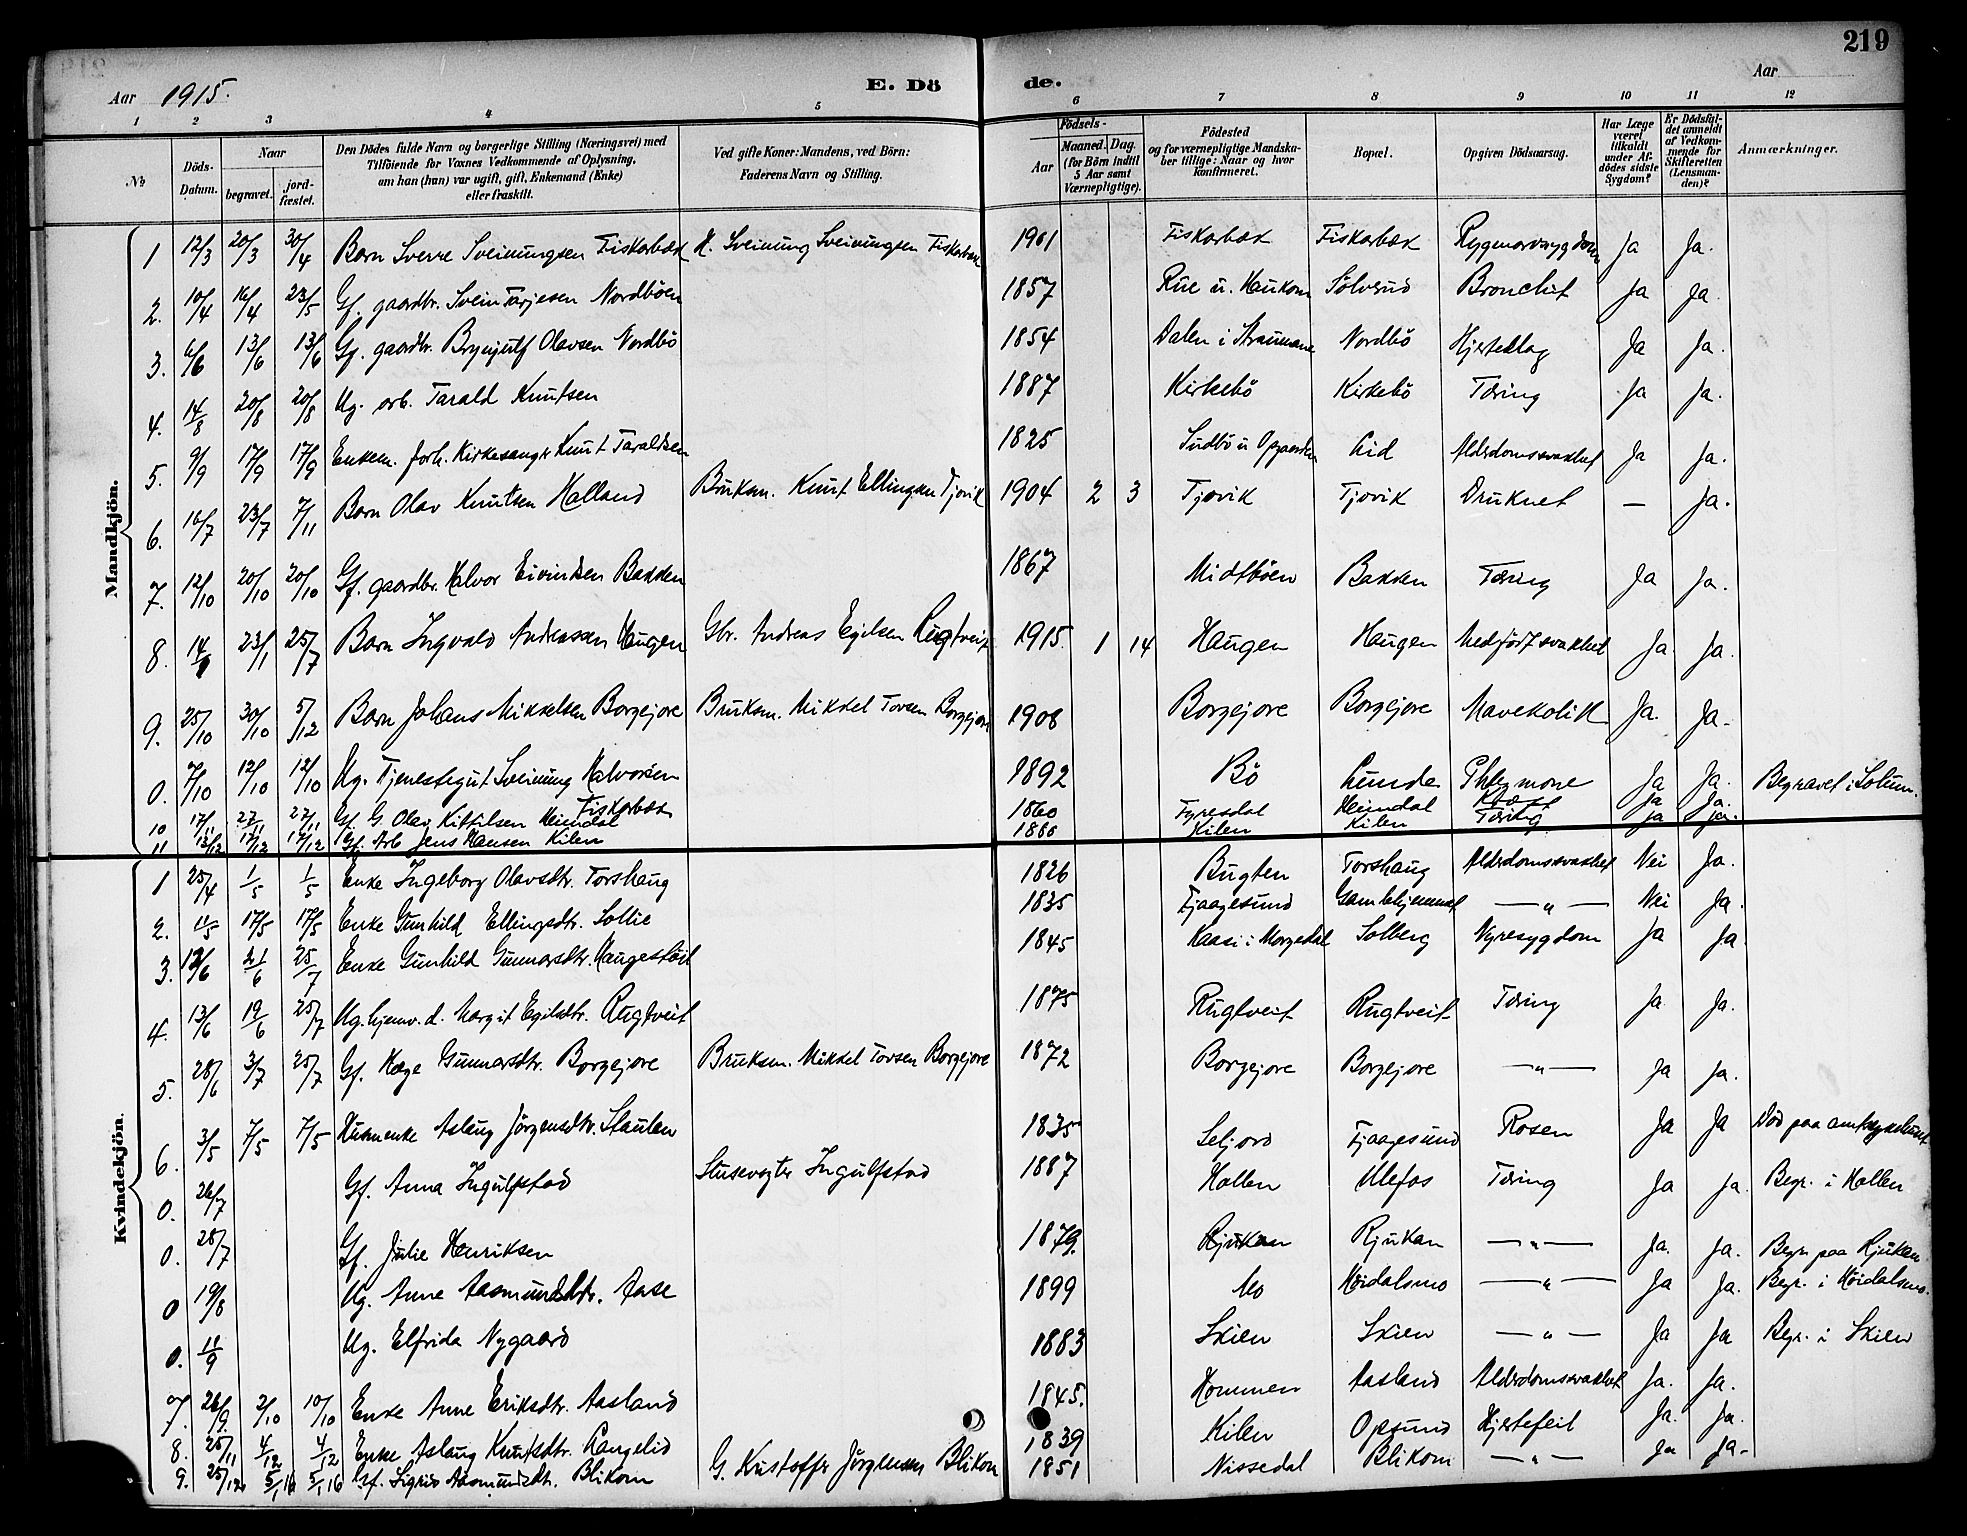 219
Aar 1915. E. Dö de. Aar
1 2 3 4 5 6 7 8 9 10 11 12
No Döds-Datum. Naar begravet. jordfæstet. Den Dödes fulde Navn og borgerlige Stilling (Næringsvei) med Tilföiende for Voxnes Vedkommende af Oplysning, om han (hun) var ugift, gift, Enkemand (Enke) eller fraskilt. Ved gifte Koner: Mandens, ved Börn: Faderens Navn og Stilling. Födsels- Aar Maaned. Dag. (for Börn indtil 5 Aar samt Værnepligtige). Födested og for værnepligtige Mandskaber tillige: Naar og hvor konfirmeret. Bopæl. Opgiven Dödsaarsag. Har Læge været tilkaldt under Afdödes sidste Sygdom? Er Dödsfaldet anmeldt af Vedkommende for Skifteretten (Lensmanden)? Anmærkninger.
Mandkjön.
1 12/3 20/3 30/4 Barn Sverre Sveinungsen Fiskarbæk H. Sveinung Sveinungsen Fiskarbæk 1901 Fiskarbæk Fiskarbæk Rygmarvsygdom Ja Ja.
2. 10/4 16/4 23/5 Gf. gaardbr. Svein Tarjesen Nordböen 1857 Rue u. Haukom Sölverud Bronchit Ja Ja.
3. 6/6 13/6 13/6 Gf. gaardbr. Brynjulf Olavsen Nordbö 1854 Dalen i Straumane Nordbö Hjerteslag Ja Ja.
4. 14/8 20/8 20/8 Ug. arb. Tarald Knutsen 1887 Kirkebö Kirkebö Tæring Ja Ja.
5. 9/9 17/9 17/9 Enkem. forh. Kirkesanger Knut Taraldsen 1825 Sudbö u Opgaarden Lid Alderdomssvakhet Ja Ja.
6. 16/7 23/7 7/11 Barn Olav Knutsen Halland Bruksm. Knut Ellingsen Tjovik 1904 2 3 Tjovik Tjovik Druknet — Ja.
7. 12/10 20/10 20/10 Gf. gaardbr. Halvor Eivindsen Bakken 1867 Midtböen Bakken Tæring Ja Ja.
8. 14/ 23/1 25/7 Barn Ingvald Andreassen Haugen Gbr. Andreas Egilsen Rugtveit 1915. 1 14 Haugen Haugen Medfödt svakhet Ja Ja.
9. 25/10 30/10 5/12 Barn Johans Mikkelsen Borgejore Bruksm. Mikkel Torsen Borgejore 1908 Borgejore Borgejore Mavekolik Ja. Ja.
0. 7/10 12/10 12/10 Ug. Tjenestegut Sveinung Halvorsen Fiskarbæk 1892 Bö Lunde Phlegmone Ja Ja. Begravet i Solum.
10 17/11 27/11 27/11 Gf. G. Olav Kittilsen Heimdal 1860 Fyresdal Heimdal Kræft Ja Ja.
11 13/12 17/12 17/12 Gf. Arb Jens Hansen Kilen 1886 Kilen Kilen Tæring Ja Ja.
Kvindekjön.
1 25/4 1/5 1/5 Enke Ingeborg Olavsdtr. Torshaug 1826 Bugten Torshaug Alderdomssvakhet Nei Ja.
2. 11/5 17/5 17/5 Enke Gunhild Ellingsdtr. Sollie 1835 Fjaagesund Gamlehjemmet — " — Nei Ja.
3. 12/6 21/6 25/7 Enke Gunhild Gunnarsdtr. Haugestöit 1845 Kaasi i Morgedal Solberg Nyresygdom Ja Ja
4. 13/6 19/6 25/7 Ug. hjemv. d. Margit Egilsdtr. Rugtveit 1875 Rugtveit Rugtveit Tæring Ja Ja.
5. 28/6 3/7 25/7 Gf. Hæge Gunnarsdtr. Borgejore Bruksm. Mikkel Torsen Borgejore 1872 Borgejore Borgejore — " — Ja Ja.
6. 3/5 7/5 7/5 Husmenke Aslaug Jörgensdtr. Staulen 1835 Seljord Fjaagesund Rosen Ja Ja Död paa amtssykehuset
0. 26/7 Gf. Anna Ingulfstad Slusevogter Ingulfstad 1887 Hollen Ulefos Tæring Ja Ja. Begr. i Hollen
0. 28/7 Gf. Julie Henriksen 1879. Rjukan Rjukan — " — Ja. Ja. Begr. paa Rjukan
0 19/8 Ug. Anne Aasmundsdtr. Aase 1899 Mo Höidalsmo — " — Ja Ja. Begr. i Höidalsmo.
0. 11/9 Ug. Elfrida Nygaard 1883 Skien Skien — " — Ja Ja Begr. i Skien
7. 26/9. 2/10 10/10 Enke Anne Eriksdtr. Aasland 1845. Hommen Aasland Alderdomssvakhet Ja. Ja.
8. 25/11 4/12 4/12 Enke Aslaug Knutsdtr. Langelid 1839 Kilen Opsund Hjertefeil Ja. Ja.
9. 25/12 5/1 16 5/1 16 Gf. Sigrid Aasmundsdtr. Blikom G. Kristoffer Jörgensen Blikom 1851 Nissedal Blikom — " — Ja Ja-